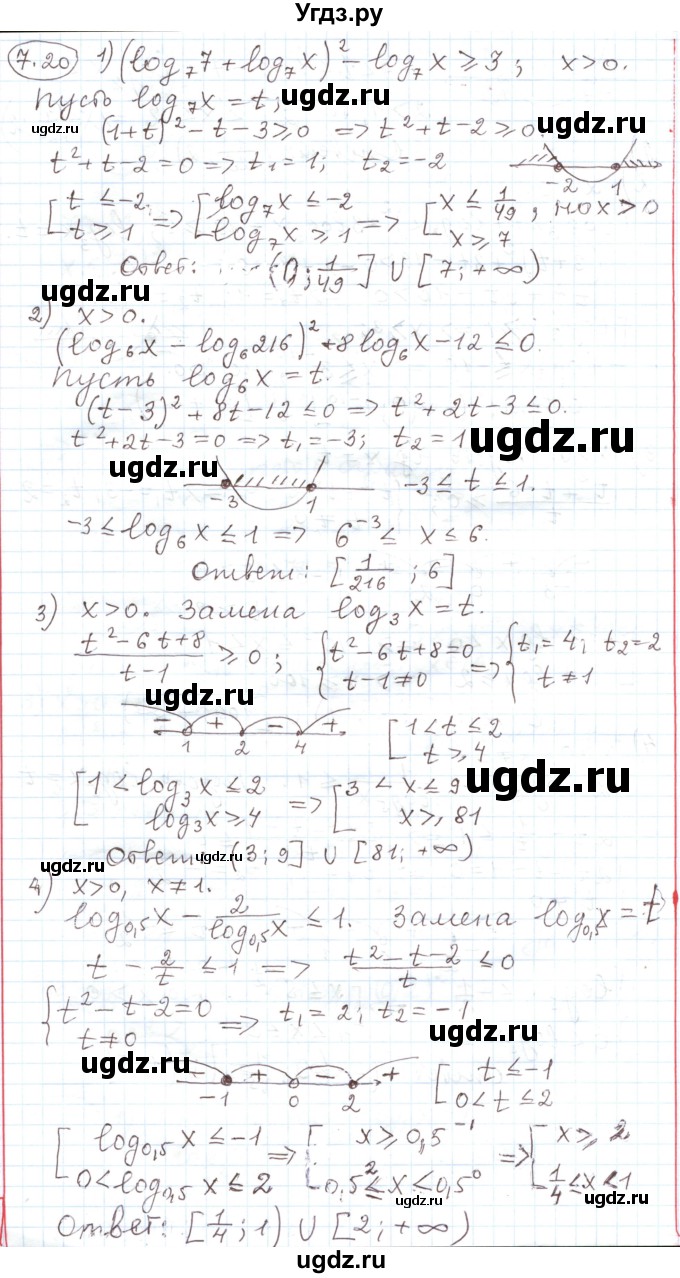 Угдз.ру
7.20 1) (log₇7 + log₇x)² - log₇x ≥ 3 ; x>0.
Пусть log₇x = t;
ugdz.ru ugdz.ru
(1+t)² - t - 3 ≥ 0 => t² + t - 2 ≥ 0.
t² + t - 2 = 0 => t₁ = 1; t₂ = -2
-2 1
[ t ≤ -2 t ≥ 1 => [ log₇x ≤ -2 log₇x ≥ 1 => [ x ≤ 1/49 ; но x>0 x ≥ 7
Ответ: (0; 1/49] ∪ [7; +∞)
ugdz.ru ugdz.ru
2) x>0.
(log₆x - log₆216)² + 8 log₆x - 12 ≤ 0.
Пусть log₆x = t.
(t-3)² + 8t - 12 ≤ 0 => t² + 2t - 3 ≤ 0.
t² + 2t - 3 = 0 => t₁ = -3; t₂ = 1
ugdz.ru ugdz.ru
-3 1 -3 ≤ t ≤ 1.
-3 ≤ log₆x ≤ 1 => 6⁻³ ≤ x ≤ 6.
Ответ: [1/216 ; 6]
3) x>0. Замена log₃x = t.
(t² - 6t + 8)/(t-1) ≥ 0 ; { t² - 6t + 8 = 0 t - 1 ≠ 0 => { t₁ = 4; t₂ = 2 t ≠ 1
ugdz.ru
- + - + 1 2 4 [ 1 < t ≤ 2 t ≥ 4
[ 1 < log₃x ≤ 2 log₃x ≥ 4 => [ 3 < x ≤ 9 x ≥ 81
ugdz.ru
Ответ (3; 9] ∪ [81; +∞)
ugdz.ru ugdz.ru
4) x>0, x≠1.
log₀,₅x - 2/log₀,₅x ≤ 1. Замена log₀,₅x = t
t - 2/t ≤ 1 => (t² - t - 2)/t ≤ 0
{ t² - t - 2 = 0 t ≠ 0 => t₁ = 2; t₂ = -1
ugdz.ru ugdz.ru
- + - + -1 0 2 [ t ≤ -1 0 < t ≤ 2
[ log₀,₅x ≤ -1 0 < log₀,₅x ≤ 2 => [ x ≥ 0,5⁻¹ 0,5² ≤ x < 0,5⁰ => [ x ≥ 2 1/4 ≤ x < 1
Ответ: [1/4; 1) ∪ [2; +∞)
ugdz.ru
ugdz.ru